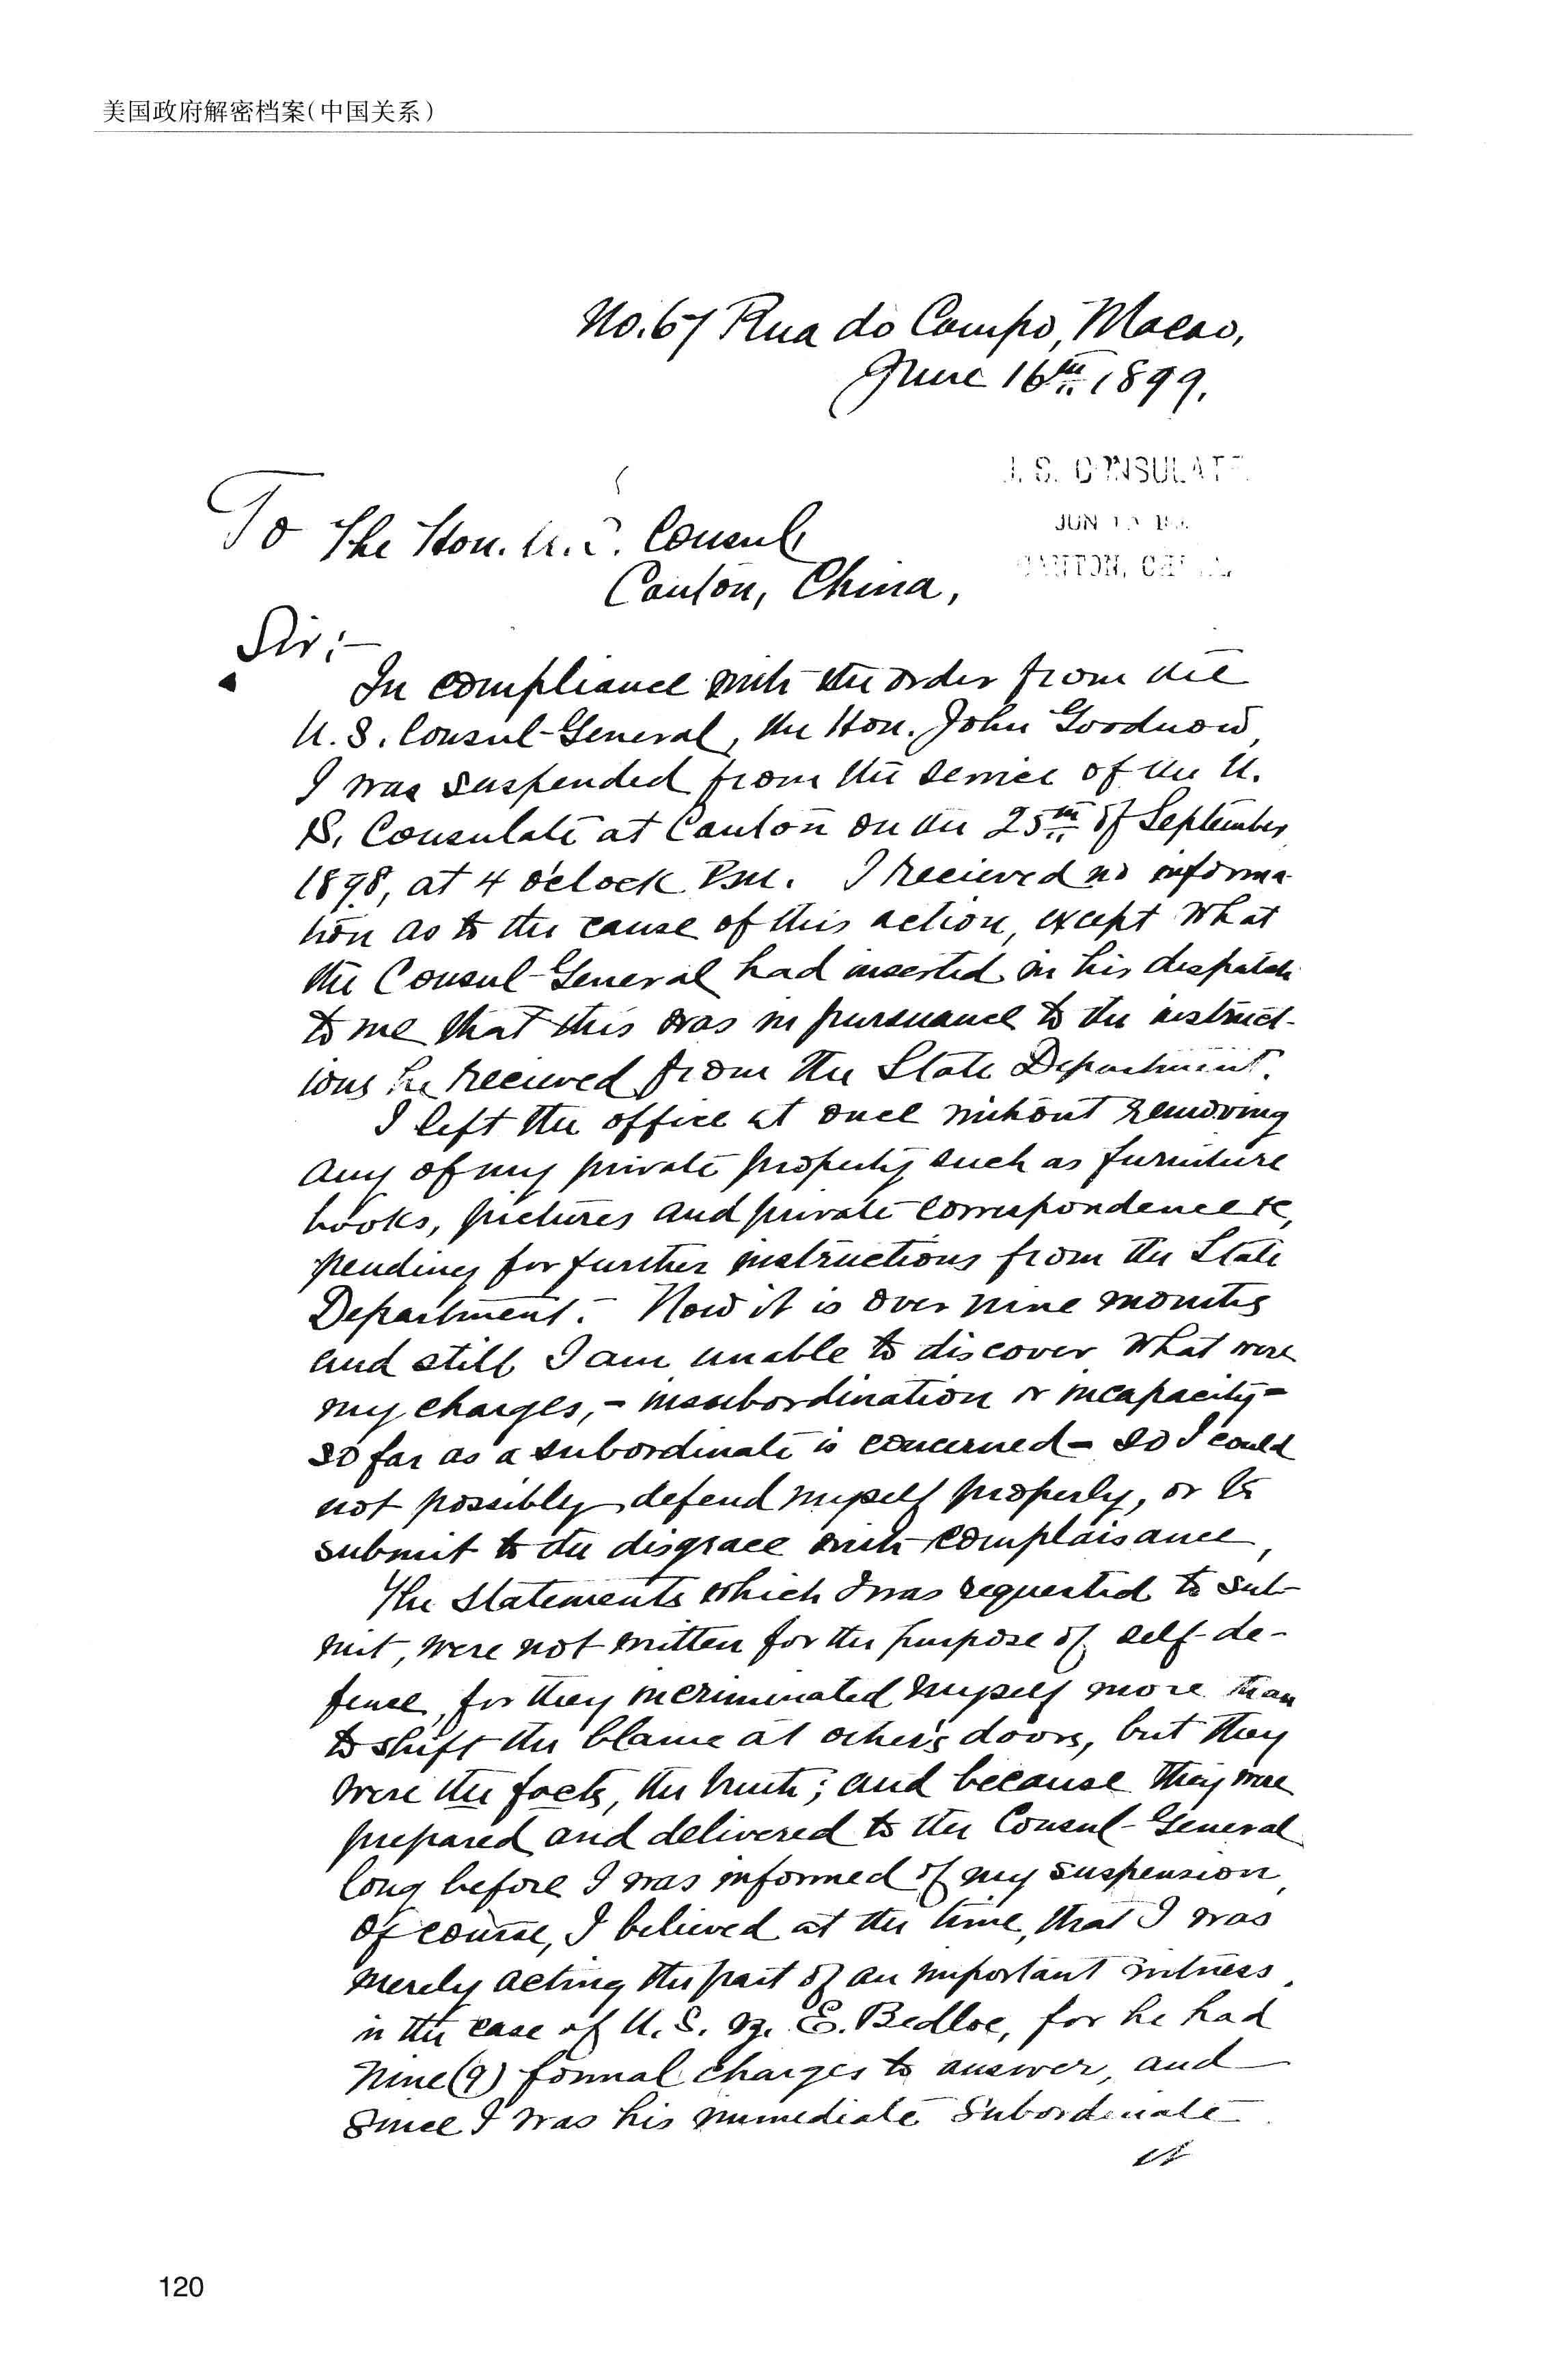 美国政府解密档案(中国关系)
No. 67 Rua do Campo, Macao,
June 16th 1899.
U.S. CONSULATE
JUN
CANTON, CHINA
To The Hon. U.S. Consul,
Canton, China,
Sir:—
In compliance with the order from the
U.S. Consul-General, the Hon. John Goodnow,
I was suspended from the service of the U.
S. Consulate at Canton on the 25th of September
1898, at 4 o'clock P.M. I recieved no informa-
tion as to the cause of this action, except what
the Consul-General had inserted in his despatch
to me that this was in pursuance to the instruct-
ions he recieved from the State Department.
I left the office at once without removing
any of my private property such as furniture
books, pictures and private correspondence &c,
pending for further instructions from the State
Department. Now it is over nine months
and still I am unable to discover what were
my charges, - insubordination or incapacity -
so far as a subordinate is concerned - so I could
not possibly defend myself properly, or to
submit to the disgrace with complaisance,
The statements which I was requested to sub-
mit, were not written for the purpose of self-de-
fence, for they incriminated myself more than
to shift the blame at other's doors, but they
were the facts, the truth; and because they were
prepared and delivered to the Consul-General
long before I was informed of my suspension,
of course, I believed at the time, that I was
merely acting the part of an important witness
in the case of U.S. vs. E. Bedloe, for he had
nine (9) formal charges to answer, and
since I was his immediate subordinate
it
120